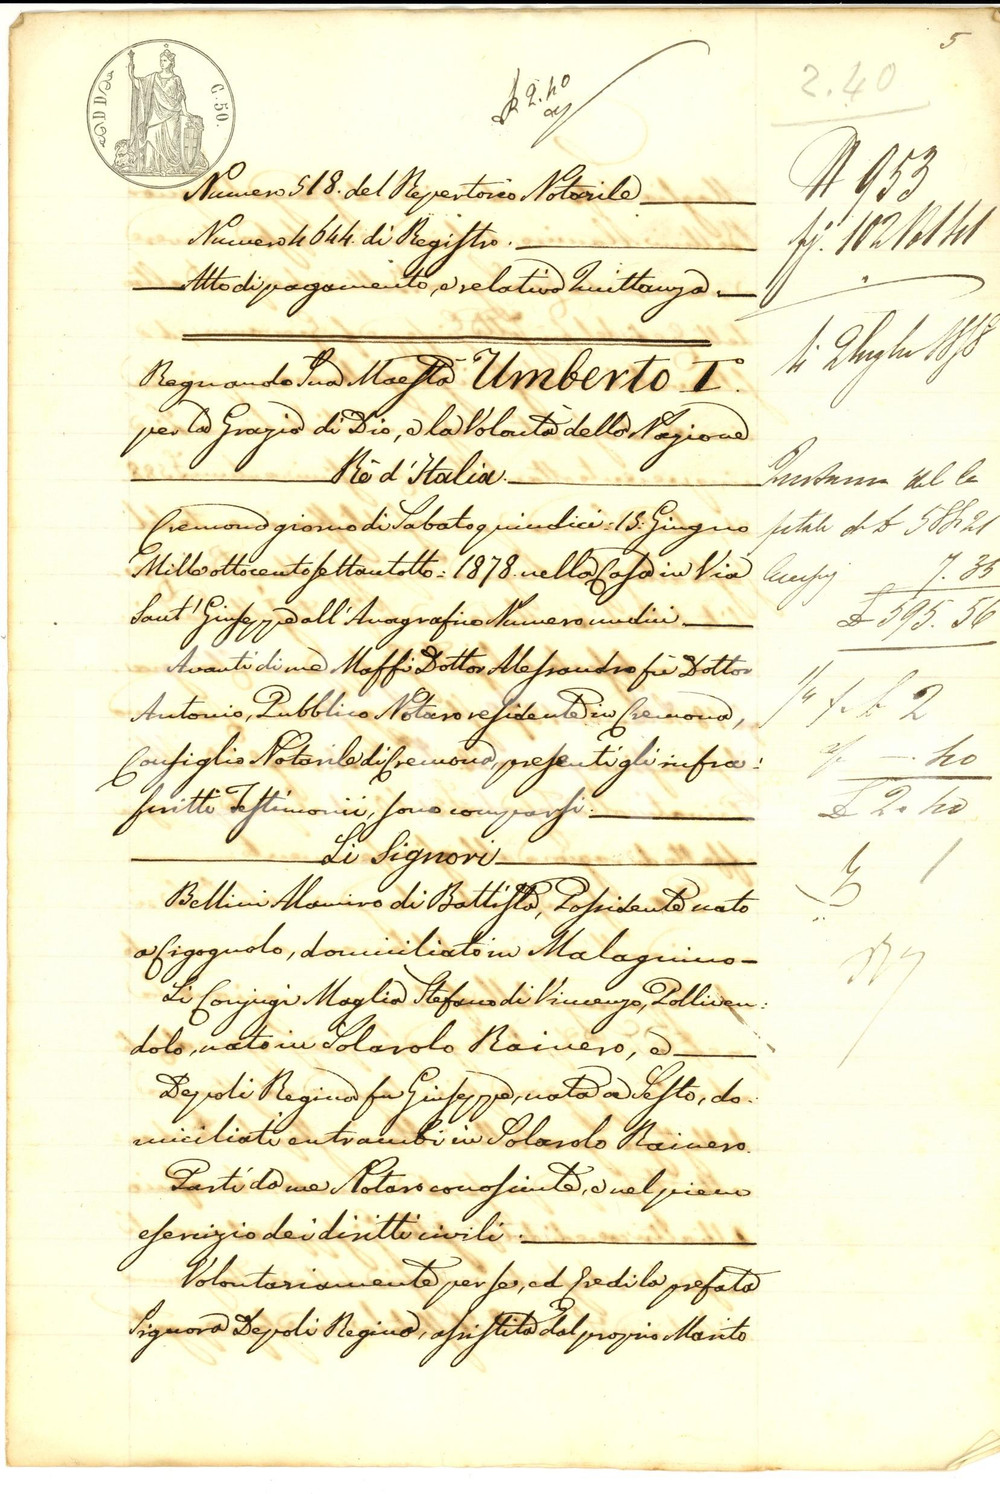 5
2.40
£ 2.40
C. 50.
N 953
Numero 518. del Repertorio Notarile
Numero 4644. di Registro.
Atto di pagamento, e relativa Quittanza.
li 2 Luglio 1878
Regnando Sua Maestà Umberto I.
per la Grazia di Dio, e la Volontà della Nazione
Rè d'Italia.
Cremona giorno di Sabato quindici = 15. Giugno
Mille ottocento settantotto = 1878. nella Casa in Via
Sant' Giuseppe all' Anagrafico Numero undici
Avanti di me Maffi Dottor Alessandro fù Dottor
Antonio, Pubblico Notaro residente in Cremona,
Consiglio Notarile di Cremona, presenti gli infra=
scritti Testimonii, sono comparsi:
Li Signori
Bellini Alamiro di Battista, Possidente nato
a Cigognolo, domiciliato in Malagnino-
Li Conjugi Maglia Stefano di Vincenzo, Polliven=
dolo, nato in Solarolo Rainero, e
Depoli Regina fu Giuseppe, nata a Sesto, do=
miciliati entrambi in Solarolo Rainero.
Parti da me Notaro conosciute, e nel pieno
esercizio dei diritti civili.
Volontariamente per se, ed Eredi la prefata
Signora Depoli Regina, assistita dal proprio Marito
del ca
pitale di £ 588 21
7. 35
£ 595. 56
2
40
£ 2.40
1